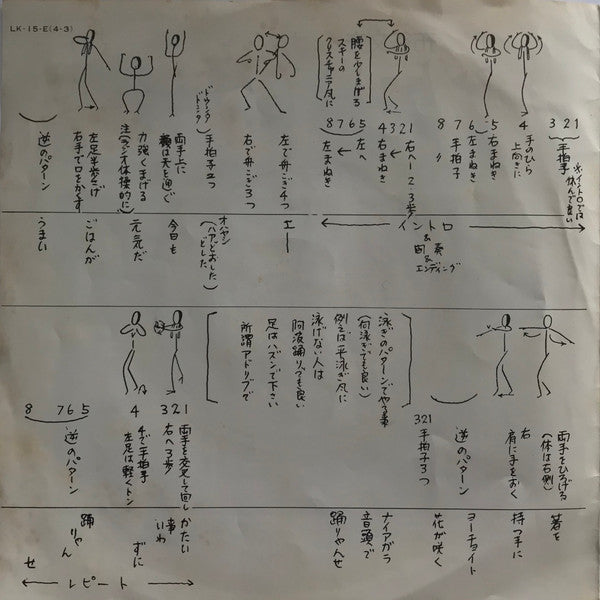 LK-15-E(4-3)
※イントロでは
休んで良い
321
手拍子
4
手のひら
上向きに
5
右まねき
6
左まねき
7
手拍子
8
〃
321
右へ1 2 3歩
4
右まねき
腰を少しまげる
スキーの
クリスチャニア風に
765
左へ
8
左まねき
左で舟こぎ4つ
右で舟こぎ3つ
手拍子2つ
(ドドンコ
ドドンコ)
両手上に
顔は天を仰ぐ
力強くまげる
注(ラジオ体操的に)
左足半歩上げ
右手で口をかくす
逆のパターン
イントロ
&
間奏
&
エンディング
エー
オハヤシ
(ハァどおした
どした)
今日も
元気だ
ごはんが
うまい
両手をひろげる
(体は右側)
右
肩に手をおく
逆のパターン
321
手拍子3つ
泳ぎのパターンでやる事
(何泳ぎでも良い)
例えば平泳ぎ風に
泳げない人は
阿波踊りでも良い
足はハズンで下さい
所謂アドリブで
321
両手を交叉して回し
右へ3歩
4
4で手拍子
左足は軽くトン
765
逆のパターン
8
箸を
持つ手に
ヨーチョイト
花が咲く
ナイアガラ
音頭で
踊りゃんせ
かたい
事
いわ
ずに
踊
りゃん
せ
レピート